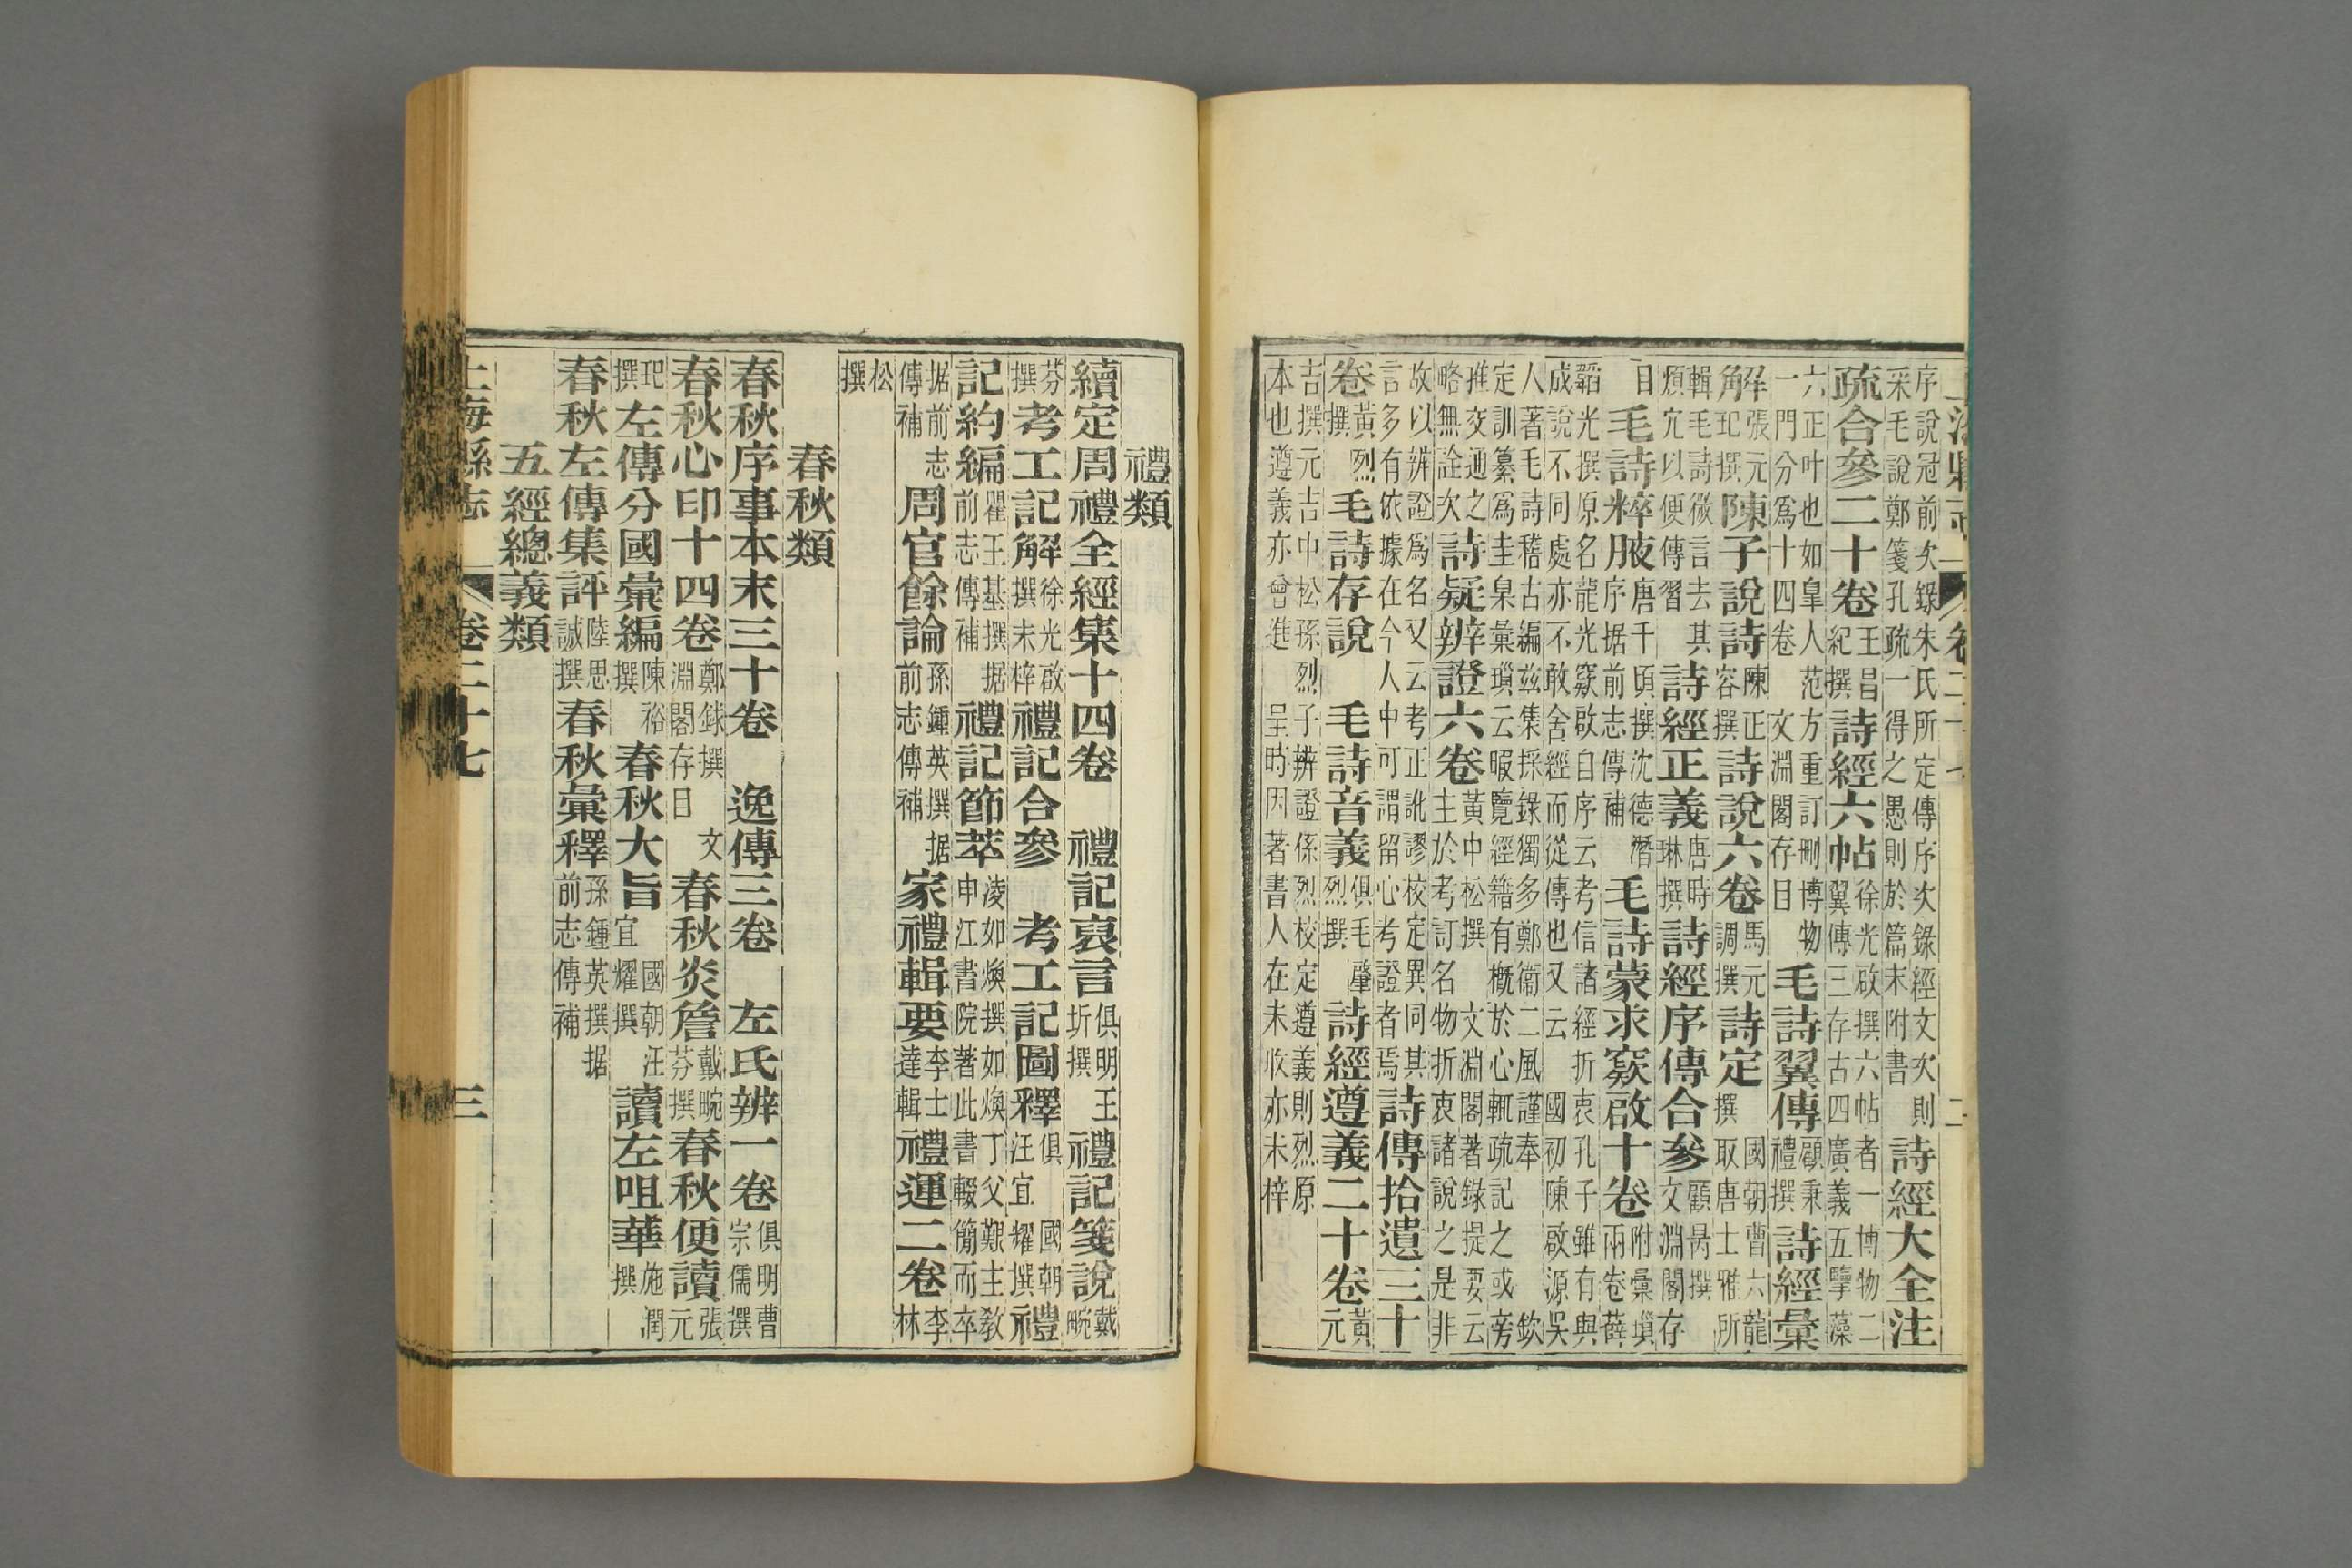 上海縣志 卷二十七 二
序說冠前次錄朱氏所定傳序次錄經文次則采毛說鄭箋孔疏一得之愚則於篇末附書詩經大全注
疏合參二十卷王昌紀撰詩經六帖徐光啟撰六帖者一博物二翼傳三存古四廣義五擥藻
六正叶也如臯人范方重訂刪博物一門分爲十四卷文淵閣存目毛詩翼傳顧秉禮撰詩經彙
解張元玘撰陳子說詩陳正容撰詩說六卷馬元調撰詩定國朝曹六龍撰取唐士雅所
輯毛詩微言去其煩宂以便傳習詩經正義唐時琳撰詩經序傳合參顧昺撰文淵閣存
目毛詩粹腋唐千頃撰沈德潛序据前志傳補毛詩蒙求窽啟十卷附彙瑣兩卷薛
韜光撰原名龍光窽啟自序云考信諸經折衷孔子雖有與成說不同處亦不敢舍經而從傳也又云 國初陳啟源吳
人著毛詩稽古編兹集採錄獨多鄭衛二風謹奉 欽定訓纂爲圭臬彙瑣云暇覽經籍有概於心輒疏記之或旁
推交通之略無詮次詩疑辨證六卷黃中松撰 文淵閣著錄提要云主於考訂名物折衷諸說之是非
故以辨證爲名又云考正訛謬校定異同其言多有依據在今人中可謂留心考證者焉詩傳拾遺三十
卷黃烈撰毛詩存說 毛詩音義俱毛肇烈撰詩經遵義二十卷黃元
吉撰元吉中松孫烈子辨證係烈校定遵義則烈原本也遵義亦曾進呈時因著書人在未收亦未梓
禮類
續定周禮全經集十四卷 禮記裒言俱明王圻撰禮記箋說戴畹
芬撰考工記解徐光啟撰未梓禮記合參 考工記圖釋俱 國朝汪宜耀撰禮
記約編瞿王基撰据前志傳補禮記節萃淩如煥撰如煥丁父艱主敎申江書院著此書輟簡而卒
据前志傳補周官餘論孫鍾英撰据前志傳補家禮輯要李士達輯禮運二卷李林
松撰
春秋類
春秋序事本末三十卷 逸傳三卷 左氏辨一卷俱明曹宗儒撰
春秋心印十四卷鄭銶撰 文淵閣存目春秋炎詹戴畹芬撰春秋便讀張元
玘撰左傳分國彙編陳裕撰春秋大旨國朝汪宜耀撰讀左咀華施潤撰
春秋左傳集評陸思誠撰春秋彙釋孫鍾英撰据前志傳補
五經總義類
上海縣志 卷二十七 三